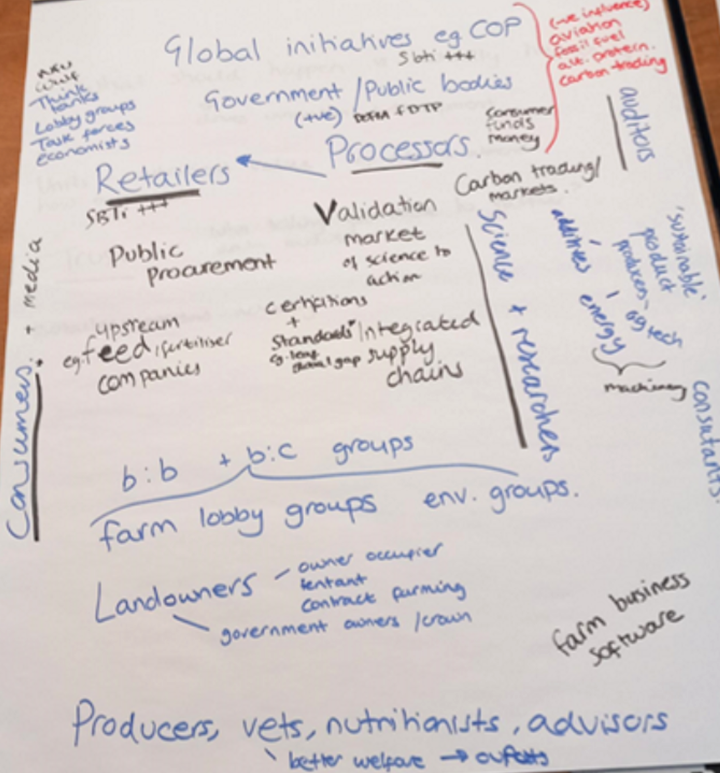 Global initiatives eg COP
Sbti +++
(-ve influence)
aviation
fossil fuel
alt. protein.
carbon trading
Think
banks
Lobby groups
Task forces
economists
Government / Public bodies
(+ve) DEFRA FDTP
consumer
funds
money
auditors
Processors
Retailers
SBTi +++
Carbon trading/
markets.
Validation
market
of science to
action
Public
procurement
Science + researchers
additives
energy
'sustainable'
product
producers
ag tech
machinery
consutants
Consumers. + media
upstream
eg. feed, fertiliser
companies
+
standards
eg. leaf
global gap
Integrated
supply
chains
b:b + b:c groups
farm lobby groups env. groups.
Landowners - owner occupier
tentant
contract
government owners / crown
farm business
software
Producers, vets, nutritionists, advisors
better welfare →